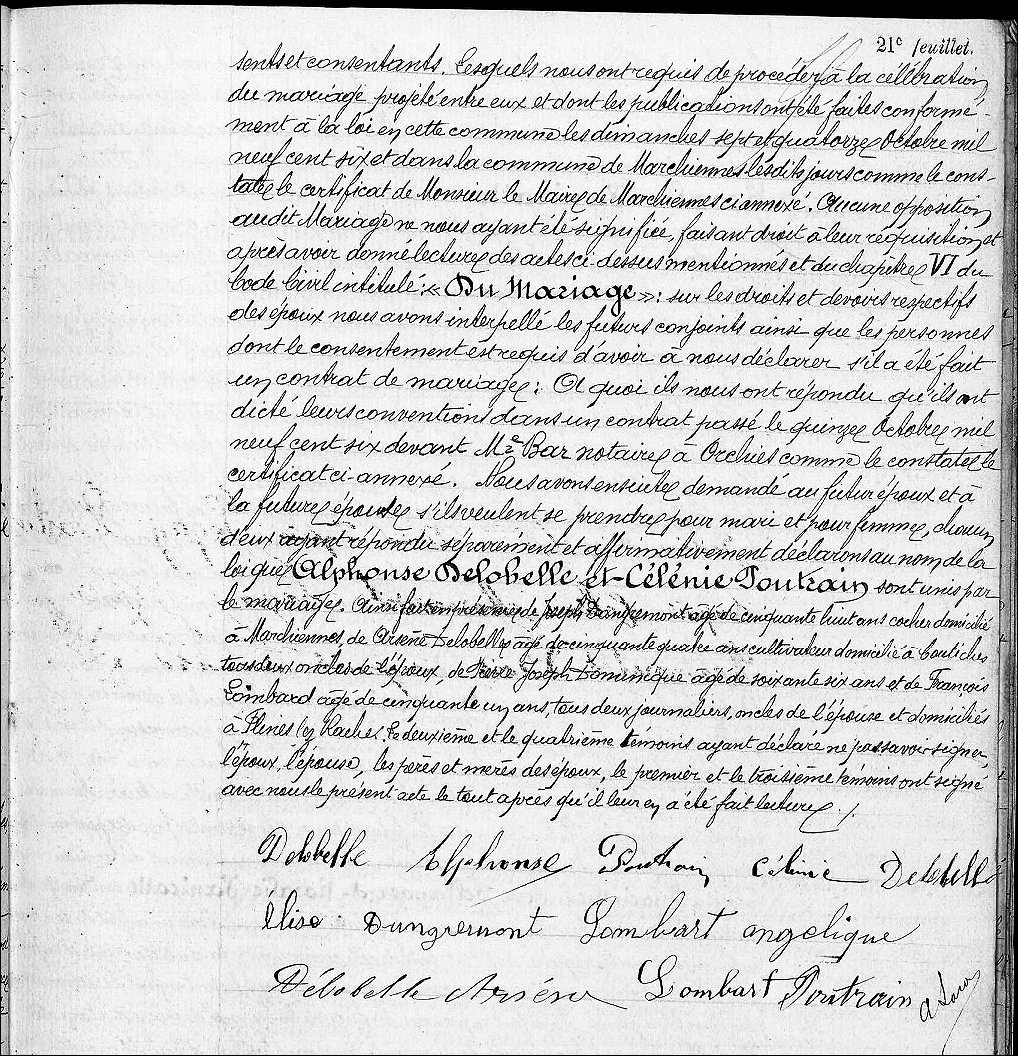 21e feuillet.
sents et consentants. Lesquels nous ont requis de procéder à la célébration
du mariage projeté entre eux et dont les publications ont été faites conformé-
ment à la loi en cette commune les dimanches sept et quatorze Octobre mil
neuf cent six et dans la commune de Marchiennes lesdits jours comme le cons-
tate le certificat de Monsieur le Maire de Marchiennes ci annexé. Aucune opposition
audit Mariage ne nous ayant été signifiée, faisant droit à leur réquisition et
après avoir donné lecture des actes ci-dessus mentionnés et du chapitre VI du
Code Civil intitulé : « Du Mariage » : sur les droits et devoirs respectifs
des époux nous avons interpellé les futurs conjoints ainsi que les personnes
dont le consentement est requis d'avoir à nous déclarer s'il a été fait
un contrat de mariage : A quoi ils nous ont répondu qu'ils ont
dicté leurs conventions dans un contrat passé le quinze Octobre mil
neuf cent six devant Me Bar notaire à Orchies comme le constate le
certificat ci-annexé. Nous avons ensuite demandé au futur époux et à
la future épouse s'ils veulent se prendre pour mari et pour femme, chacun
d'eux ayant répondu séparément et affirmativement déclarons au nom de la
loi que Alphonse Delobelle et Célénie Poutrain sont unis par
le mariage. Ainsi fait en présence de Joseph Dangremont âgé de cinquante huit ans cocher domicilié
à Marchiennes, de Arsène Delobelle âgé de cinquante quatre ans cultivateur domicilié à Coutiches
tous deux oncles de l'époux, de Pierre Joseph Dominique âgé de soixante six ans et de François
Lombard âgé de cinquante un ans, tous deux journaliers, oncles de l'épouse et domiciliés
à Flines lez Raches. Le deuxième et le quatrième témoins ayant déclaré ne pas savoir signer,
l'époux, l'épouse, les pères et mères des époux, le premier et le troisième témoins ont signé
avec nous le présent acte le tout après qu'il leur en a été fait lecture ./.
Delobelle Alphonse Poutrain Célinie Delobelle
élise Dangremont Lombart angélique
Délobelle Arséne Lombart Poutrain